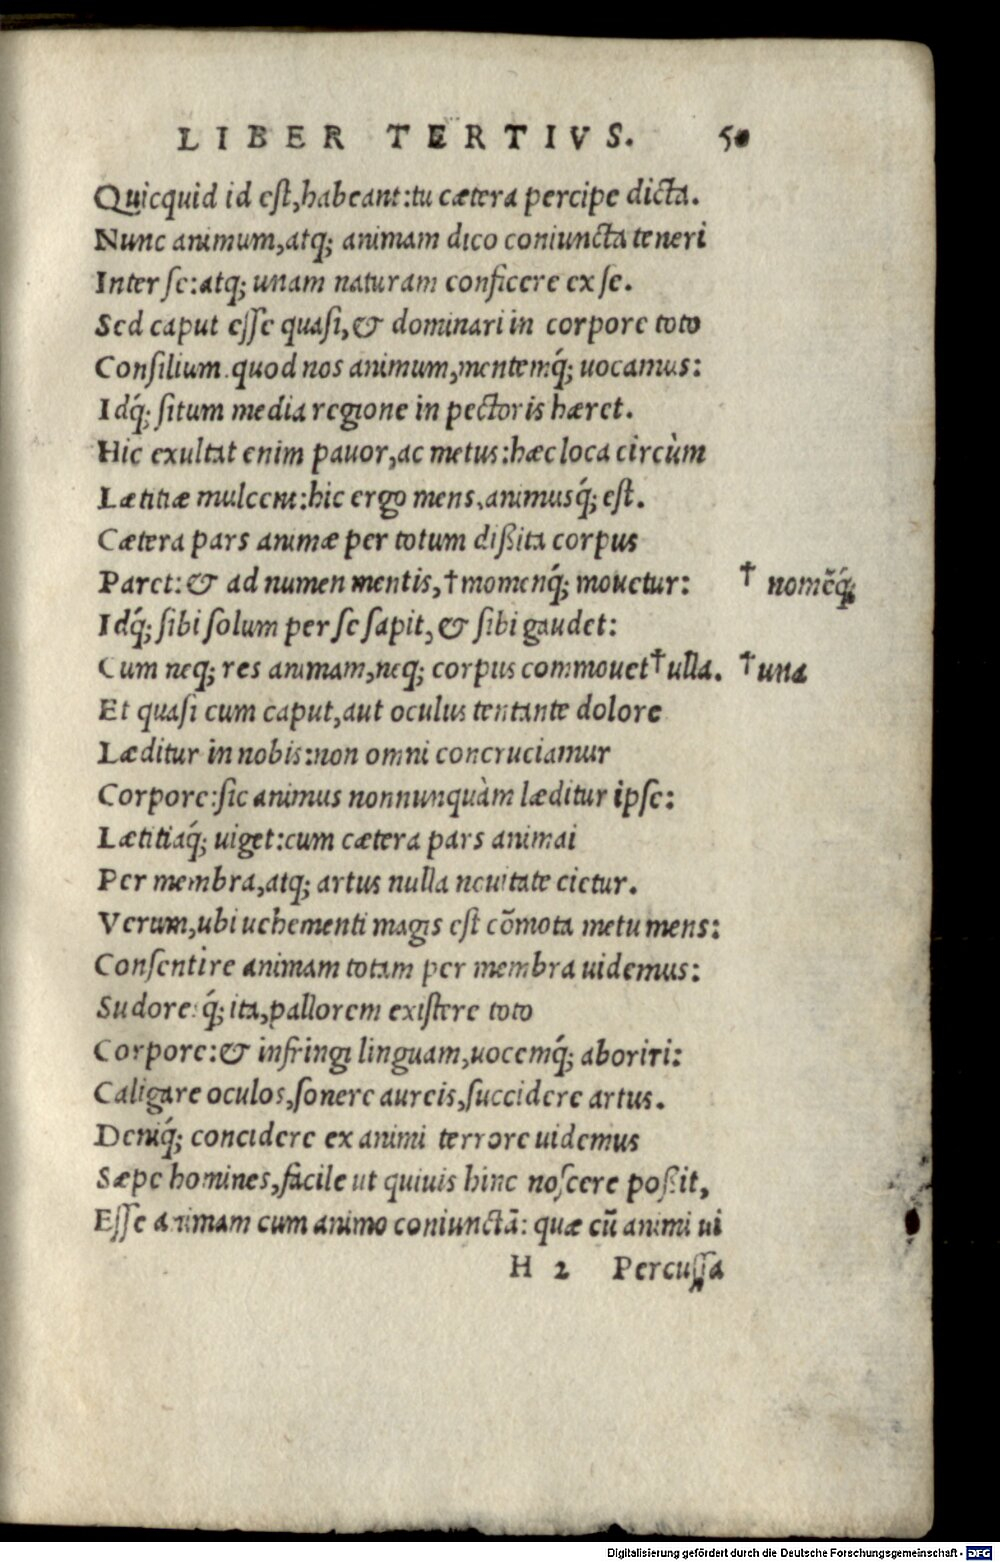 LIBER TERTIVS. 50
Quicquid id est, habeant: tu cætera percipe dicta.
Nunc animum, atq; animam dico coniuncta teneri
Inter se: atq; unam naturam conficere ex se.
Sed caput esse quasi, & dominari in corpore toto
Consilium quod nos animum, mentemq́; uocamus:
Idq́; situm media regione in pectoris hæret.
Hic exultat enim pauor, ac metus: hæc loca circùm
Lætitiæ mulcent: hic ergo mens, animusq́; est.
Cætera pars animæ per totum dißita corpus
Paret: & ad numen mentis, † momenq́; mouetur: † nomẽq́;
Idq́; sibi solum per se sapit, & sibi gaudet:
Cum neq; res animam, neq; corpus commouet † ulla. † una
Et quasi cum caput, aut oculus tentante dolore
Læditur in nobis: non omni concruciamur
Corpore: sic animus nonnunquàm læditur ipse:
Lætitiaq́; uiget: cum cætera pars animai
Per membra, atq; artus nulla nouitate cietur.
Verum, ubi uehementi magis est cõmota metu mens:
Consentire animam totam per membra uidemus:
Sudoreq́; ita, pallorem existere toto
Corpore: & infringi linguam, uocemq́; aboriri:
Caligare oculos, sonere aureis, succidere artus.
Deniq́; concidere ex animi terrore uidemus
Sæpe homines, facile ut quiuis hinc noscere poßit,
Esse animam cum animo coniunctã: quæ cũ animi ui
H 2 Percussa
Digitalisierung gefördert durch die Deutsche Forschungsgemeinschaft - DFG